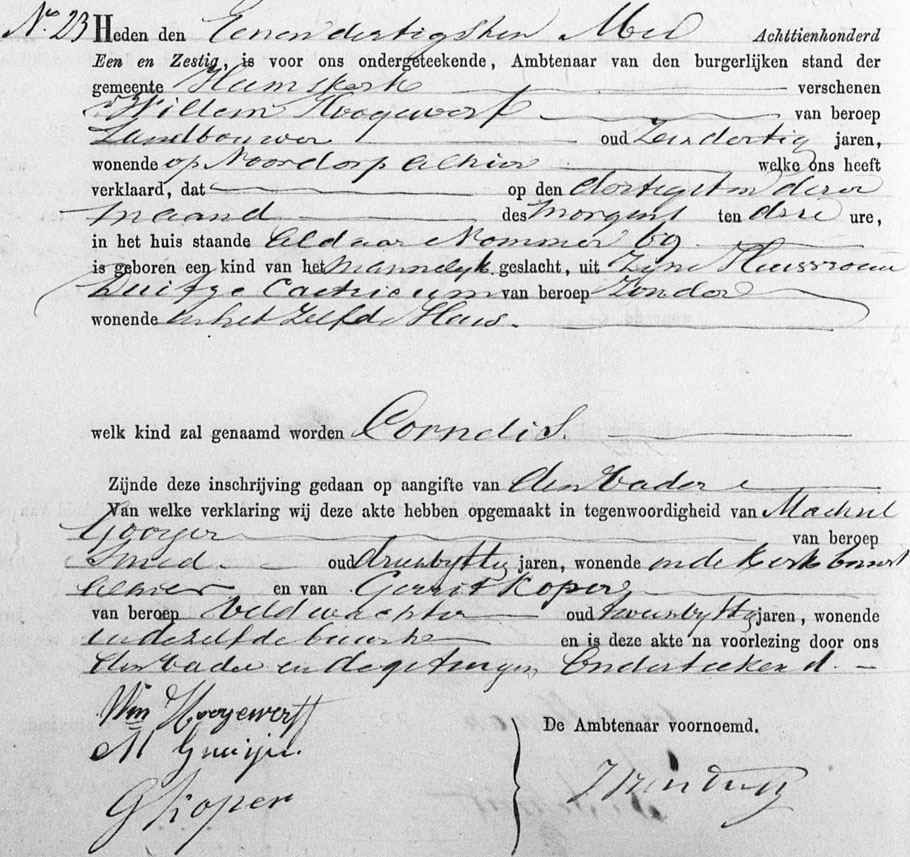 No. 23 Heden den Eenendertigsten Mei Achttienhonderd
Een en Zestig, is voor ons ondergeteekende, Ambtenaar van den burgerlijken stand der
gemeente Heemskerk verschenen
Willem Hoogewerf van beroep
Landbouwer oud dertig jaren,
wonende op Noordorp alhier welke ons heeft
verklaard, dat op den dertigsten dezer
maand des Morgens ten drie ure,
in het huis staande Aldaar Nommer 69
is geboren een kind van het Mannelyk geslacht, uit Zyne Huisvrouw
Duifge Castricum van beroep Zonder
wonende in het Zelfde Huis.
welk kind zal genaamd worden Cornelis.
Zijnde deze inschrijving gedaan op aangifte van den Vader
Van welke verklaring wij deze akte hebben opgemaakt in tegenwoordigheid van Machiel
van beroep
Smid oud drienvyftig jaren, wonende in de Kerkbuurt
alhier en van Gerrit Koper
van beroep Veldwachter oud tweenvyftig jaren, wonende
in dezelfde buurt en is deze akte na voorlezing door ons
den Vader en de getuigen Onderteekend.
Wm Hoogewerf
De Ambtenaar voornoemd.
M
G Koper